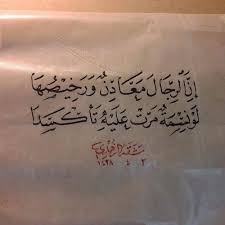 إِنَّ الرِّجَالَ مَعَادِنٌ وَرَخِيصُهَا
لَوْ نَسْمَةٌ مَرَّتْ عَلَيْهِ تَأَكْسَدَا
مشقه
١٤٢٨